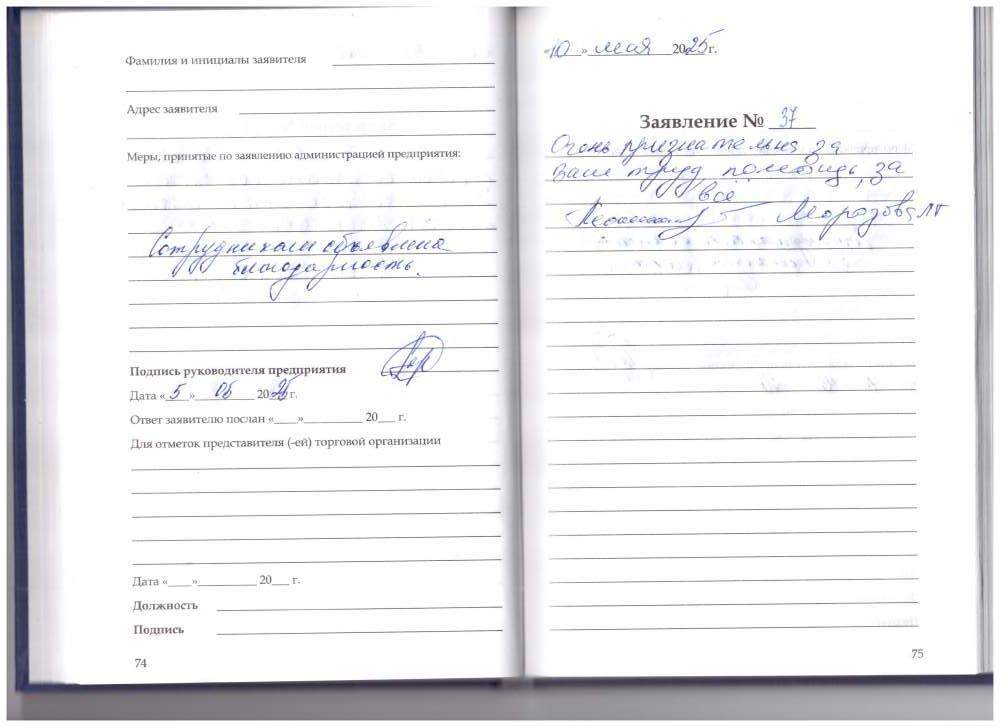 Фамилия и инициалы заявителя
Адрес заявителя
Меры, принятые по заявлению администрацией предприятия:
Сотрудникам объявлена
благодарность.
Подпись руководителя предприятия
Дата «5» 05 2025 г.
Ответ заявителю послан «____»__________ 20___ г.
Для отметок представителя (-ей) торговой организации
Дата «____»__________ 20___ г.
Должность
Подпись
74
«10» мая 2025 г.
Заявление № 37
Очень признательна за
Ваш труд, помощь, за
всё
Морозова
75